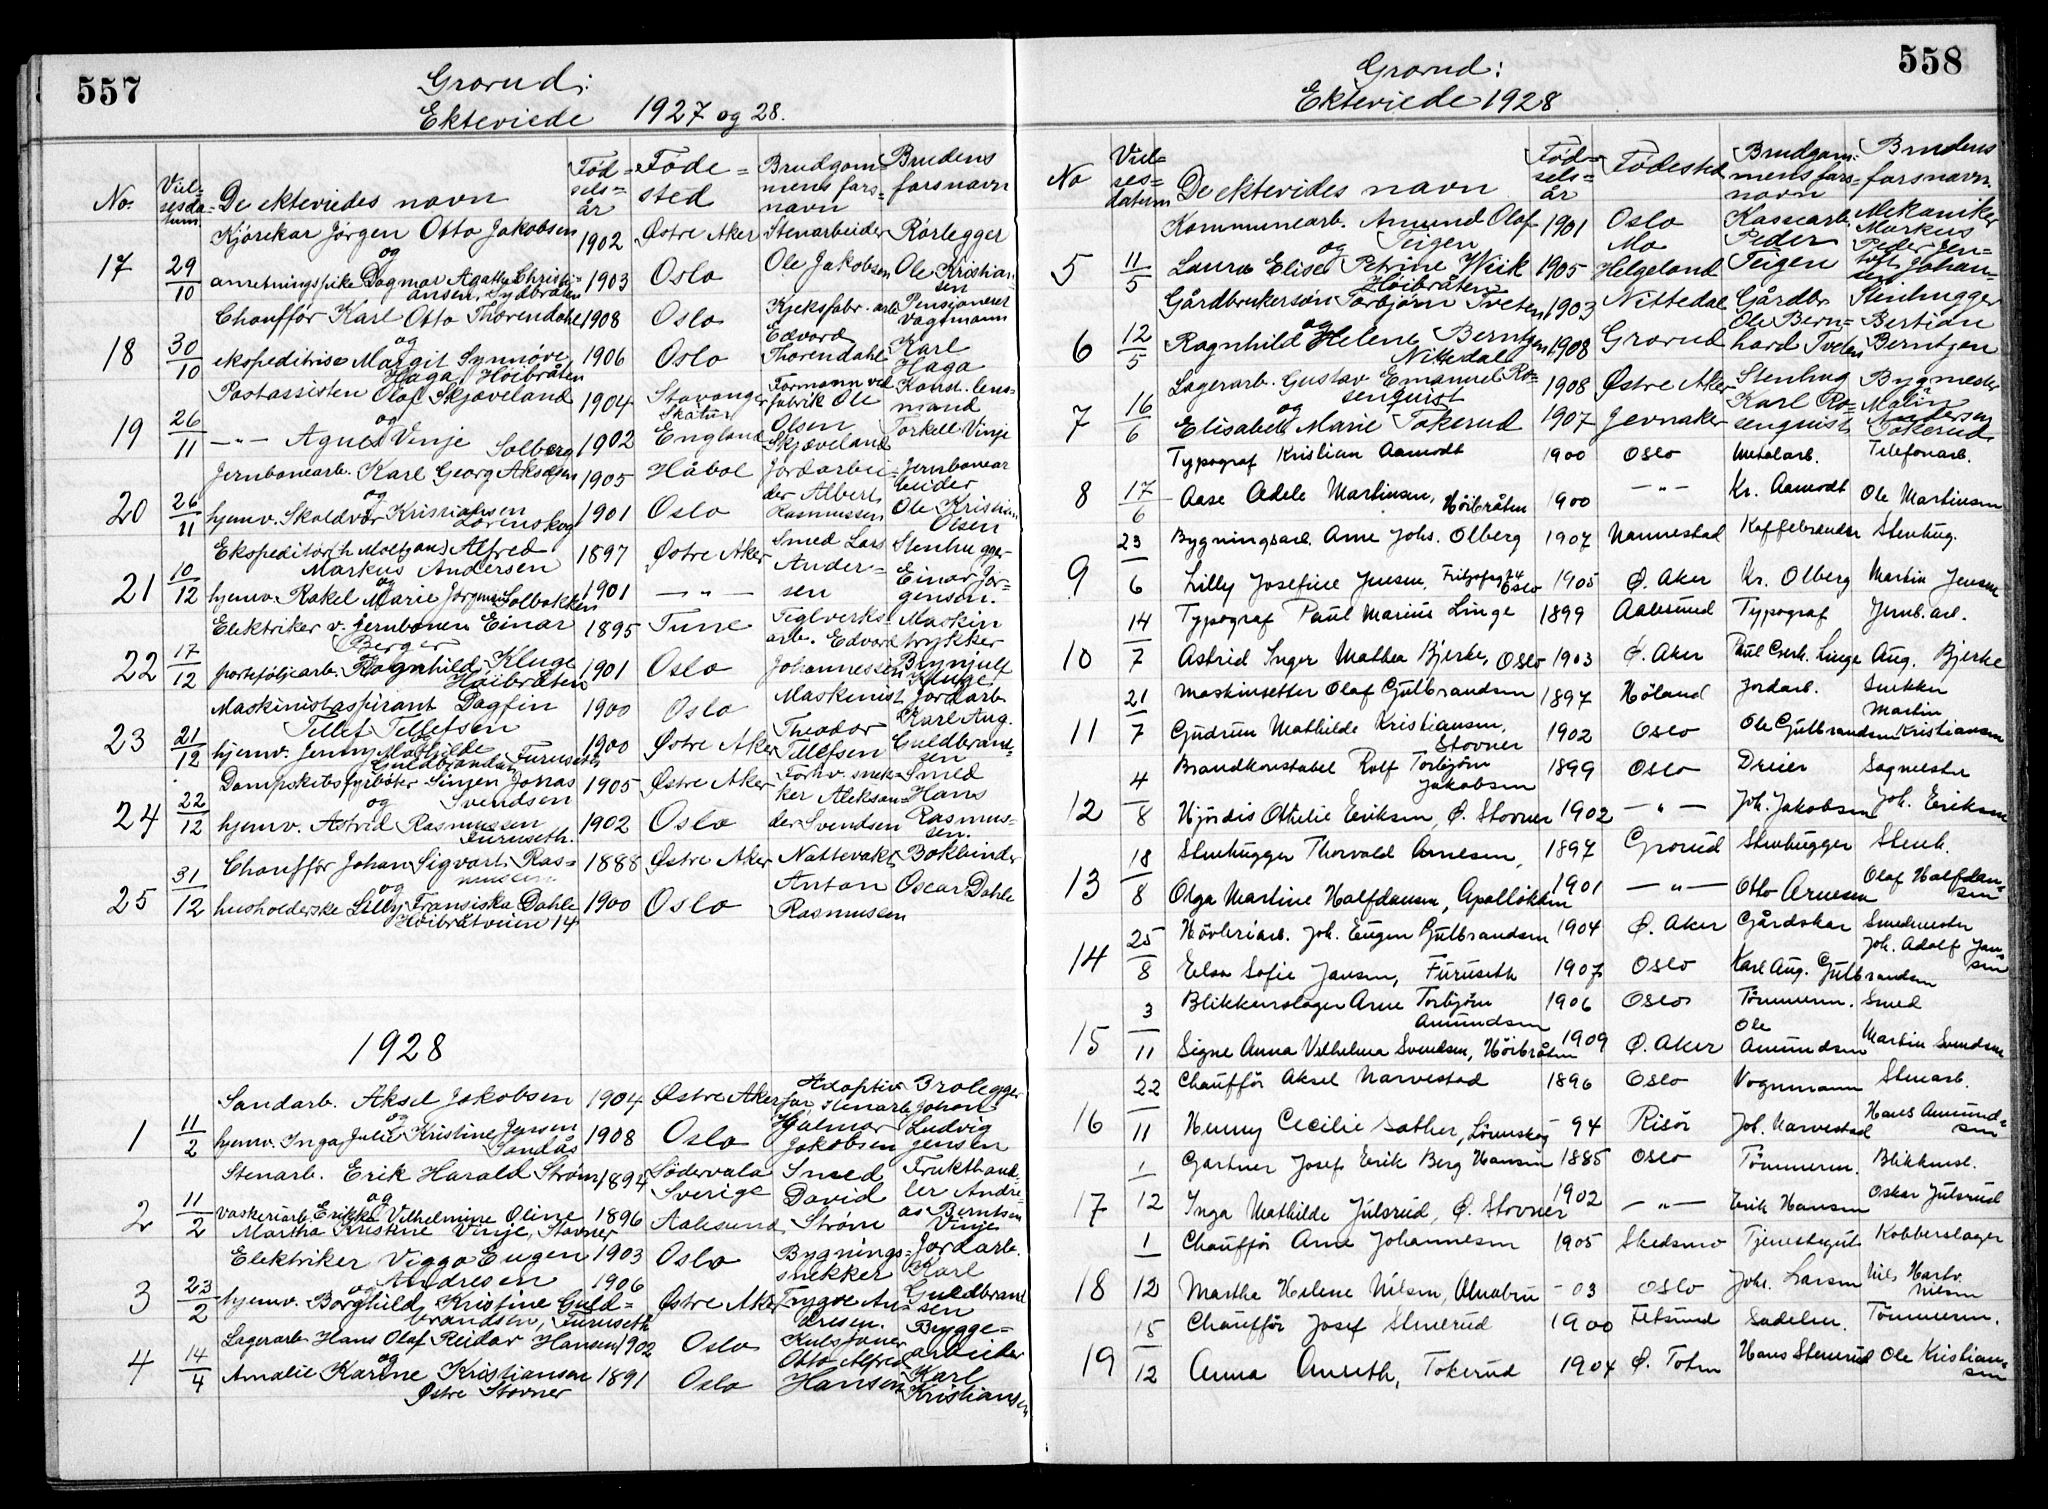 557
Grorud:
Ekteviede 1927 og 28.
No. Vielsesdatum De ekteviedes navn Fødselsår Fødested Brudgommens farsnavn Brudens farsnavn
Kjørekar Jørgen Otto Jakobsen 1902 Østre Aker Stenarbeider Rørlegger
og
17 29/10 anretningspike Dagmar Agathe Christiansen, Sydbråten 1903 Oslo Ole Jakobsen Ole Kristiansen
Chauffør Karl Otto Thorendahl 1908 Oslo Kjeksfabr. arb. Pensjonert vagtmann
og
18 30/10 ekspeditrise Margit Synnøve Haga Høibråten 1906 Oslo Edvard Thorendahl Karl Haga
Postassistent Olaf Skjæveland 1904 Stavanger Formann ved fabrik Ole Konst. lensmand
og
19 26/11 —"— Agnes Vinje Solberg 1902 England Olsen Skjæveland Torkell Vinje
Jernbanearb. Karl Georg Akselsen 1905 Håbøl Jordarbeider Albert Jernbanearbeider
og
20 26/11 hjemv. Skoldvor Kristiansen Lørenskog 1901 Oslo Rasmussen Ole Kristian Olsen
Ekspeditør Alfred Markus Andersen 1897 Østre Aker Smed Lars Stenhugger
og
21 10/12 hjemv. Rakel Marie Jørgensen Solbakken 1901 —"— Andersen Einar Jørgensen.
Elektriker v. jernbanen Einar Berger 1895 Tune Teglverksarb. Edvard Maskintrykker
og
22 17/12 porteføljearb. Ragnhild Kluge Høibråten 1901 Oslo Johannessen Brynjulf Kluge
Maskinistaspirant Dagfin Tellef Tellefsen 1900 Oslo Maskinist Jordarb.
og
23 21/12 hjemv. Jenny Mathilde Guldbrandsen, Furuseth 1900 Østre Aker Theodor Tellefsen Karl Aug. Guldbrandsen
Dampskibsfyrbøter Singen Jonas Svendsen 1905 Østre Aker Forhv. snekker Aleksander Smed
og
24 22/12 hjemv. Astrid Rasmussen Furuseth. 1902 Oslo Svendsen Hans Rasmussen.
Chauffør Johan Sigvart Rasmussen 1888 Østre Aker Nattevakt Bokbinder
og
25 31/12 husholderske Lilly Fransiska Dahle Høibråtveien 14 1900 Oslo Anton Rasmussen Oscar Dahle
1928
Sandarb. Aksel Jakobsen 1904 Østre Aker Adoptivfar Stenarb. Brolegger
og
1 11/2 hjemv. Inga Julie Kristine Jensen Sandås 1908 Oslo Hjalmar Jakobsen Johan Ludvig Jensen
Stenarb. Erik Harald Strøm 1894 Södervala Sverige Smed Frukthandler
og
2 11/2 vaskeriarb. Erikka Vilhelmine Oline Martha Kristine Vinje, Stovner 1896 Aalesund David Strøm Andreas Berntsen Vinje
Elektriker Viggo Eugen Andresen 1903 Oslo Bygningssnekker Jordarb.
og
3 23/2 hjemv. Borghild Kristine Guldbrandsen, Furuseth 1906 Østre Aker Trygve Andresen. Karl Guldbrandsen
Lagerarb. Hans Olaf Reidar Hansen 1902 Oslo Kulsjauer Bryggearbeider
og
4 14/4 Amalie Karine Kristiansen Østre Stovner 1891 Oslo Otto Alfred Hansen Karl Kristiansen
558
Grorud:
Ekteviede 1928
No Vielsesdatum De ektevides navn Fødselsår Fødested Brudgommens farsnavn Brudens farsnavn.
Kommunearb. Amund Olaf Teigen 1901 Oslo Kassearb. Mekaniker
og
5 11/5 Laura Elise Petrine Wiik Høibråten 1905 Mo Helgeland Peder Teigen Markus Peder Johansen
Gårdbrukersøn Torbjørn Tveten 1903 Nittedal Gårdbr. Stenhugger
og
6 12/5 Ragnhild Helene Berntzen Nittedal 1908 Grorud Ole Bernhard Tveten Bertian Berntzen
Lagerarb. Gustav Emanuel Rosenquist 1908 Østre Aker Stenhug. Bygmester
og
7 16/6 Elisabeth Marie Tokerud 1907 Jevnaker Karl Rosenquist Malin Andersen Tokerud
Typograf Kristian Aamodt 1900 Oslo Metalarb. Telefonarb.
8 17/6 Aase Adele Martinsen, Høibråten 1900 —"— Kr. Aamodt Ole Martinsen
Bygningsarb. Arne Johs. Olberg 1907 Nannestad Kaffebrenner Stenhug.
9 23/6 Lilly Josefine Jensen, Oslo 1905 Ø. Aker Kr. Olberg Martin Jensen
Typograf Paul Marius Linge 1899 Aalesund Typograf Jernb. arb.
10 14/7 Astrid Inger Mathea Bjerke, Oslo 1903 Ø. Aker Paul Linge Aug. Bjerke
Maskinsetter Olaf Gulbrandsen 1897 Høland Jordarb. Snekker
11 21/7 Gudrun Mathilde Kristiansen, Stovner 1902 Oslo Ole Gulbrandsen Martin Kristiansen
Brandkonstabel Rolf Torbjørn Jakobsen 1899 Oslo Dreier Sagmester
12 4/8 Hjørdis Othelie Eriksen, Ø. Stovner 1902 —"— Joh. Jakobsen Joh. Eriksen
Stenhugger Thorvald Arnesen, 1897 Grorud Stenhugger Stenh.
13 18/8 Olga Martine Halfdansen, Apalløkken 1901 —"— Otto Arnesen Olaf Halfdansen
Høvleriarb. Joh. Eugen Gulbrandsen 1904 Ø. Aker Gårdskar Smedmester
14 25/8 Elsa Sofie Jansen, Furuseth 1907 Oslo Karl Aug. Gulbrandsen Joh. Adolf Jansen
Blikkenslager Arne Torbjørn Amundsen 1906 Oslo Tømmerm. Smed
15 3/11 Signe Anna Vilhelma Svendsen, Høibråten 1909 Ø. Aker Ole Amundsen Martin Svendsen
Chauffør Aksel Narvestad 1896 Oslo Vognmann Stenarb.
16 22/11 Henny Cecilie Sather, Lørenskog -94 Risør Joh. Narvestad Hans Amundsen
Gartner Josef Erik Berg Hansen 1885 Oslo Tømmerm. Blikkensl.
17 1/12 Inga Mathilde Julsrud, Ø. Stovner 1902 —"— Erik Hansen Oskar Julsrud
Chauffør Arne Johannesen 1905 Skedsmo Tjenestegut Kobberslager
18 1/12 Martha Helene Nilsen, Alnabru -03 Oslo Joh. Larsen Nils Hartv. Nilsen
Chauffør Josef Stenerud 1900 Fetsund Sadelm. Tømmerm.
19 15/12 Anna Anseth, Tokerud 1904 Ø. Toten Hans Stenerud Ole Kristiansen